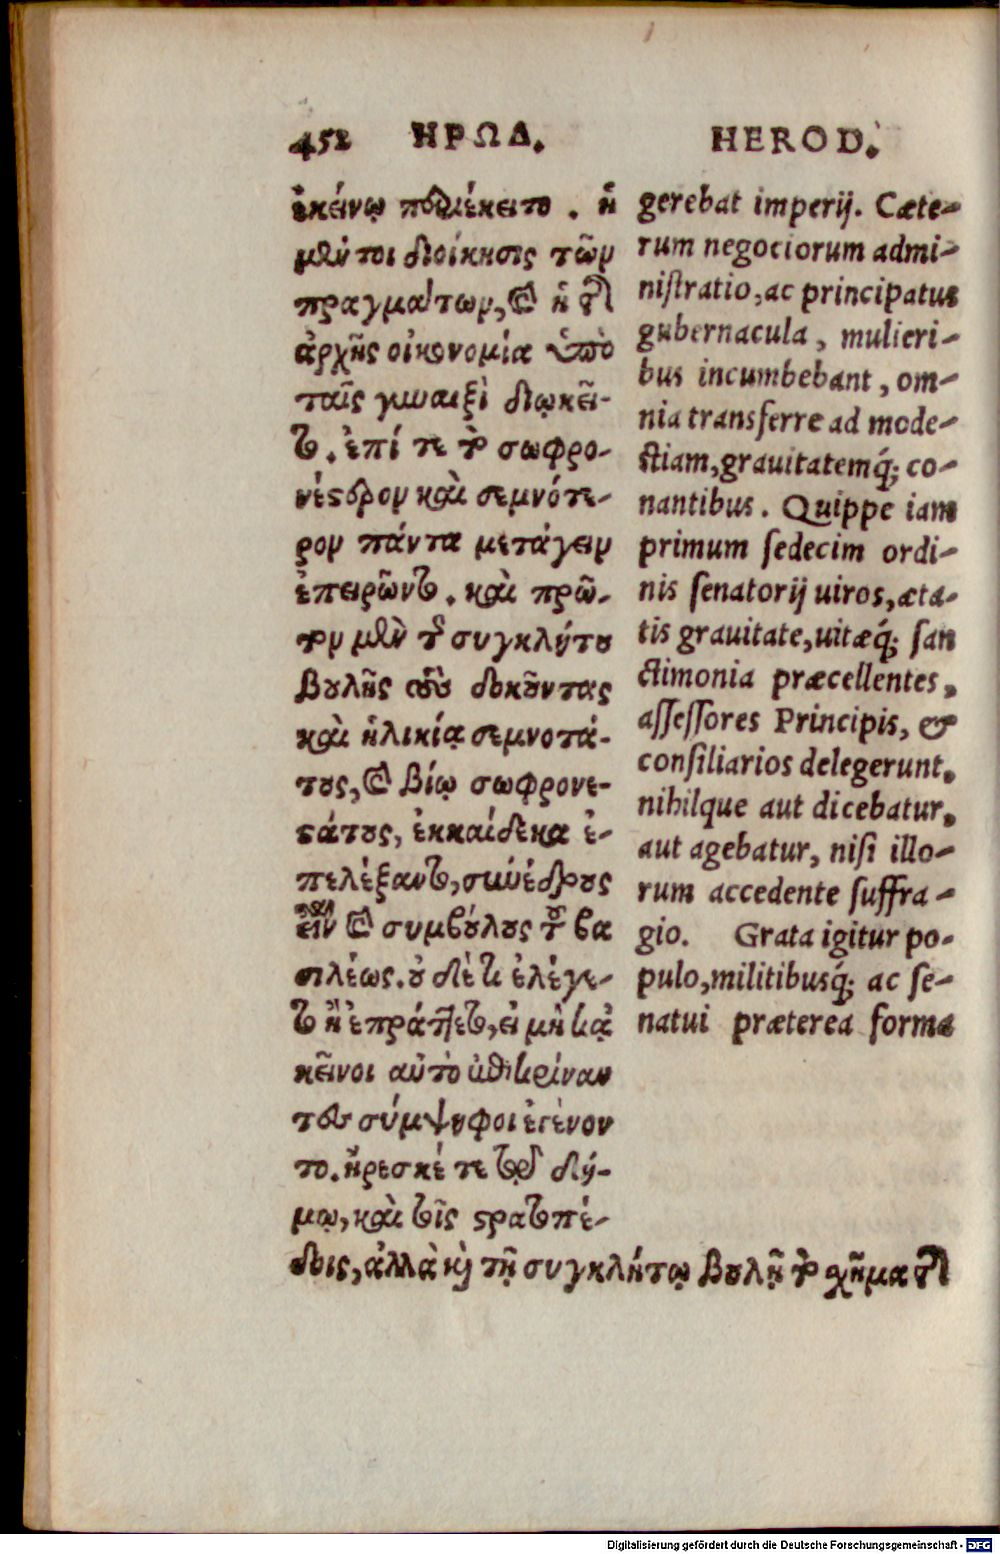 452 ΗΡΩΔ. HEROD.
ἐκείνῳ περιέκειτο. ἡ
μέντοι διοίκησις τῶν
πραγμάτων, καὶ ἡ τῆς
ἀρχῆς οἰκονομία ὑπὸ
ταῖς γυναιξὶ διῳκεῖ-
το. ἐπί τε τὸ σωφρο-
νέστερον καὶ σεμνότε-
ρον πάντα μετάγειν
ἐπειρῶντο. καὶ πρῶ-
τον μὲν τῆς συγκλήτου
βουλῆς τοὺς δοκοῦντας
καὶ ἡλικίᾳ σεμνοτά-
τους, καὶ βίῳ σωφρονε-
στάτους, ἑκκαίδεκα ἐ-
πελέξαντο, συνέδρους
εἶναι καὶ συμβούλους τοῦ βα
σιλέως. οὐδέ τι ἐλέγε-
το ἢ ἐπράττετο, εἰ μὴ κᾀ
κεῖνοι αὐτὸ ἐπικρίναν
τες σύμψηφοι ἐγένον
το. ἤρεσκέ τε τῷ δή-
μῳ, καὶ τοῖς στρατοπέ-
δοις, ἀλλὰ καὶ τῇ συγκλήτῳ βουλῇ τὸ σχῆμα τῆς
gerebat imperij. Cæte-
rum negociorum admi-
nistratio, ac principatus
gubernacula, mulieri-
bus incumbebant, om-
nia transferre ad mode-
stiam, grauitatemq́; co-
nantibus. Quippe iam
primum sedecim ordi-
nis senatorij uiros, æta-
tis grauitate, uitæq́; san
ctimonia præcellentes,
assessores Principis, &
consiliarios delegerunt.
nihilque aut dicebatur,
aut agebatur, nisi illo-
rum accedente suffra-
gio. Grata igitur po-
pulo, militibusq́; ac se-
natui præterea forma
Digitalisierung gefördert durch die Deutsche Forschungsgemeinschaft - DFG